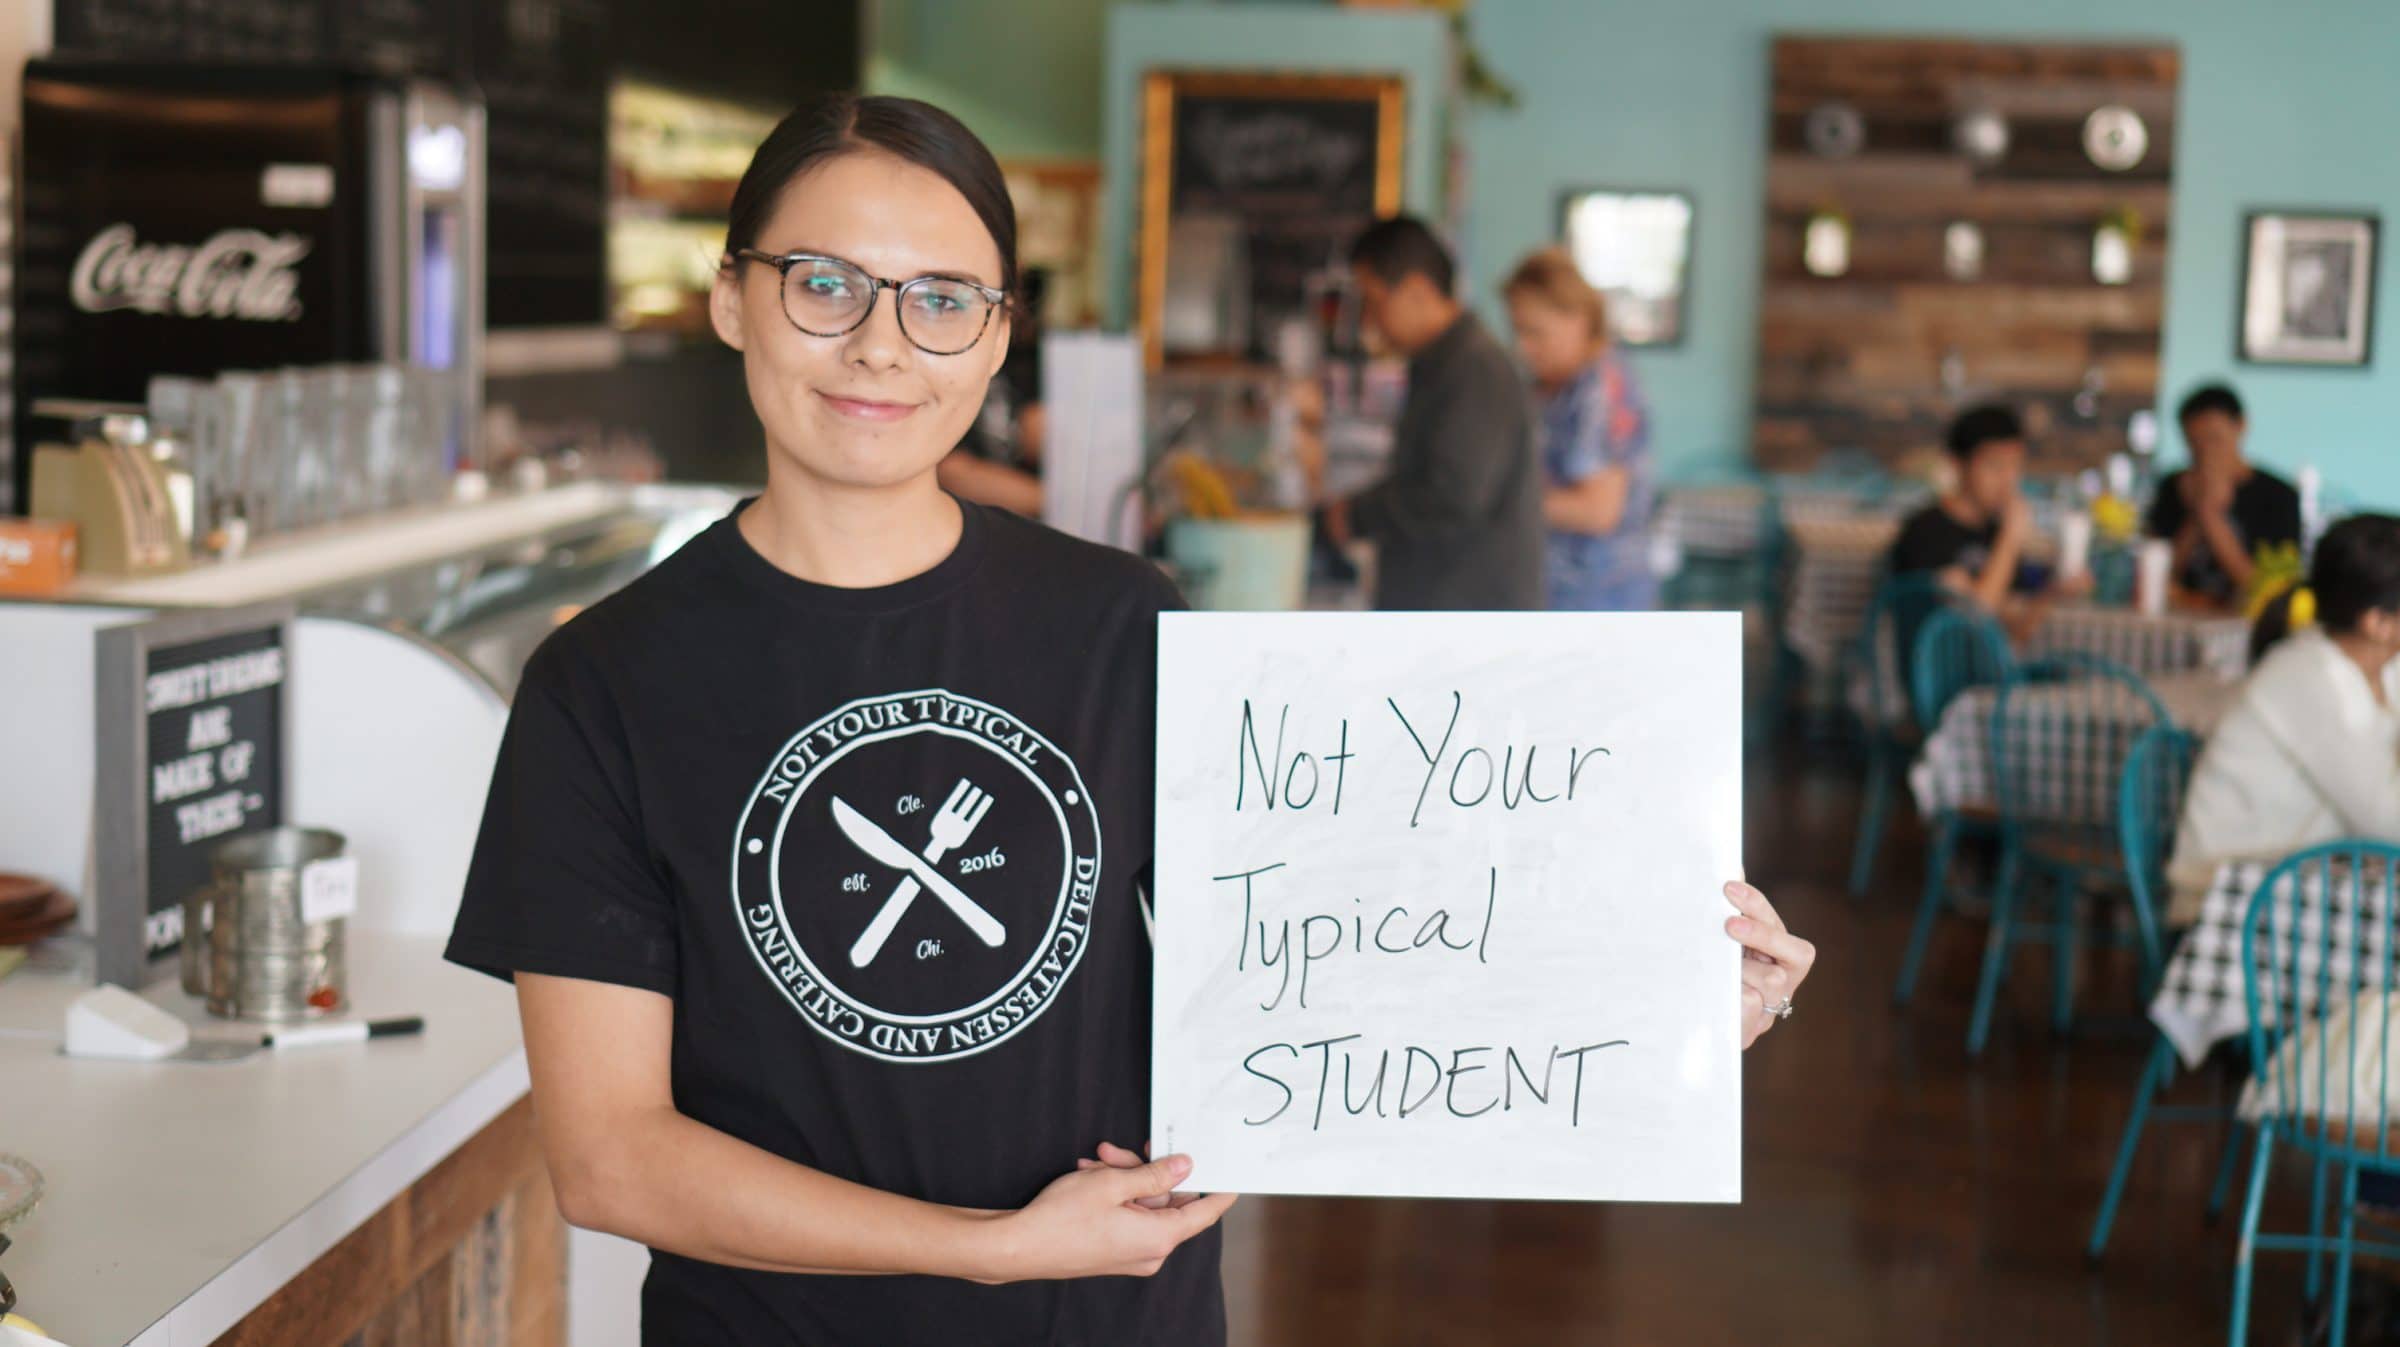 Coca-Cola
NOT YOUR TYPICAL
DELICATESSEN AND CATERING
Cle.
est.
2016
Chi.
Not Your
Typical
STUDENT
SWEET DREAMS
ARE
MADE OF
THESE-
Tips